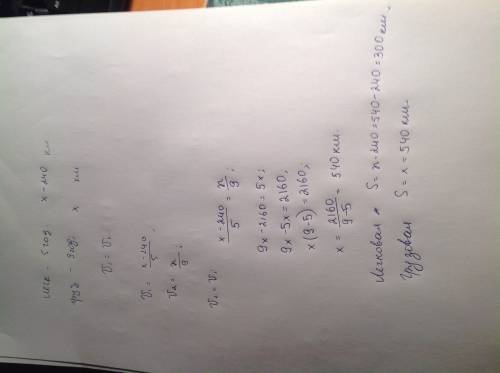 легк - 5 год x-240 км
груз - 9 год; x км
V₁ = V₂.
V₁ = x-240/5;
V₂ = x/9;
V₂ = V₁
x-240/5 = x/9;
9x-2160=5x;
9x-5x=2160;
x(9-5)=2160;
x = 2160/9-5 = 540 км.
Легковая S = x-240=540-240=300 км.
Грузовая S = x = 540 км.